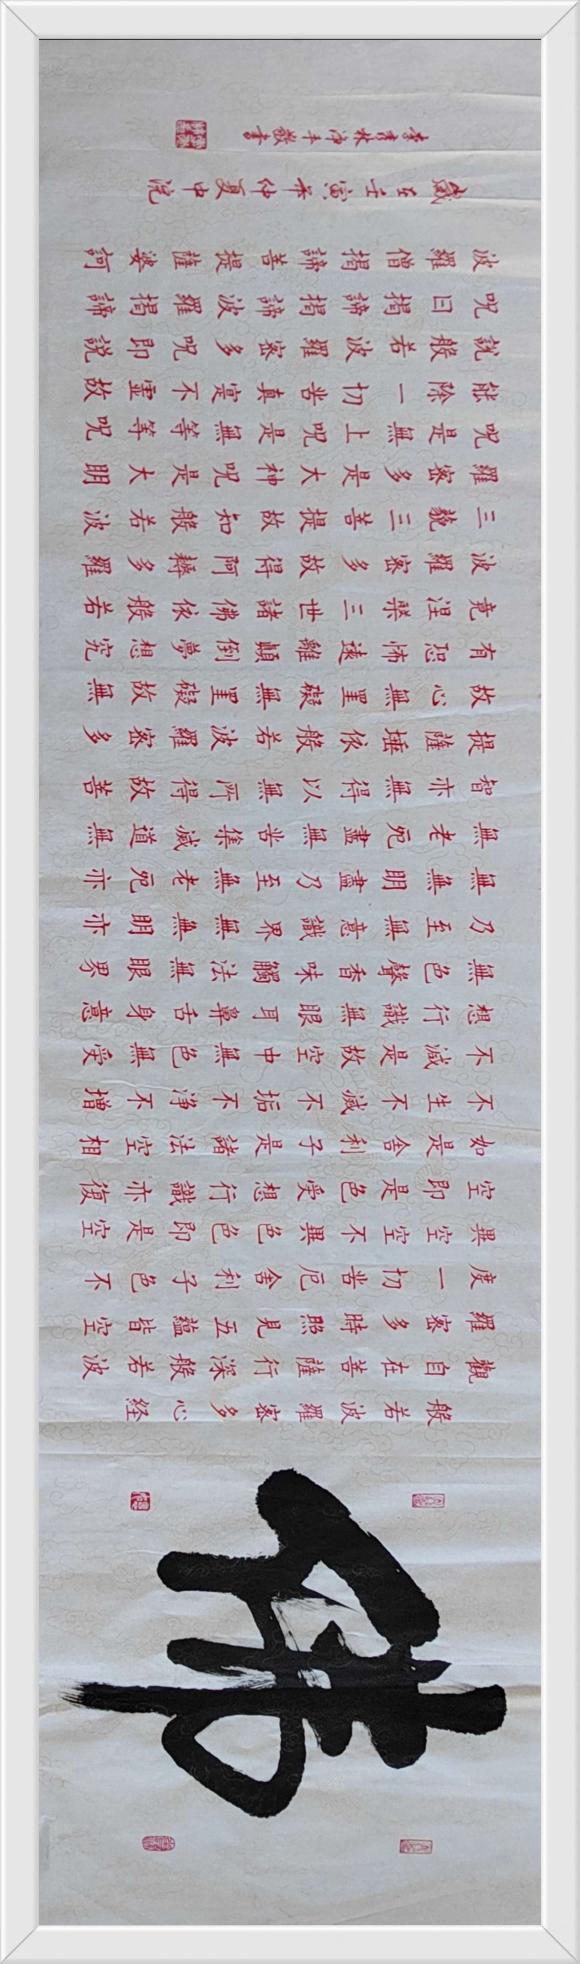 佛
般若波羅密多心経
觀自在菩薩行深般若波
羅密多時照見五蘊皆空
度一切苦厄舍利子色不
異空空不異色色即是空
空即是色受想行識亦復
如是舍利子是諸法空相
不生不滅不垢不淨不增
不減是故空中無色無受
想行識無眼耳鼻舌身意
無色聲香味觸法無眼界
乃至無意識界無無明亦
無無明盡乃至無老死亦
無老死盡無苦集滅道無
智亦無得以無所得故菩
提薩埵依般若波羅密多
故心無罣礙無罣礙故無
有恐怖遠離顛倒夢想究
竟涅槃三世諸佛依般若
波羅密多故得阿耨多羅
三藐三菩提故知般若波
羅密多是大神呪是大明
呪是無上呪是無等等呪
能除一切苦真實不虛故
說般若波羅密多呪即說
呪曰揭諦揭諦波羅揭諦
波羅僧揭諦菩提薩婆訶
歲在壬寅年仲夏中浣
林沐手敬書